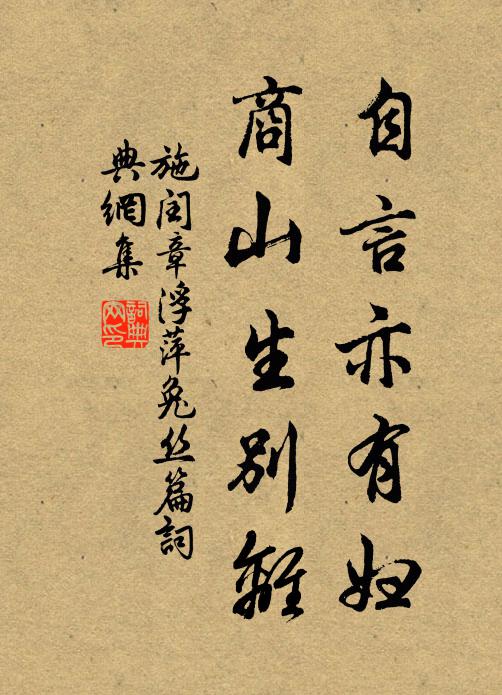 自言亦有妇
商山生别離
施闰章浮萍兔丝篇詞
典網集
詞典
网印